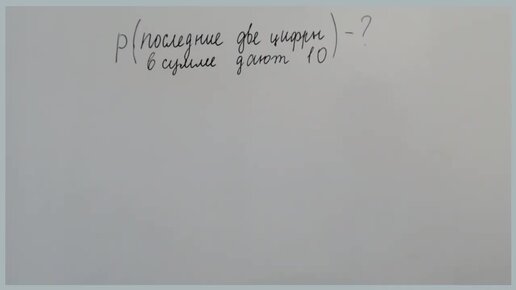 P(последние две цифры
в сумме дают 10) - ?